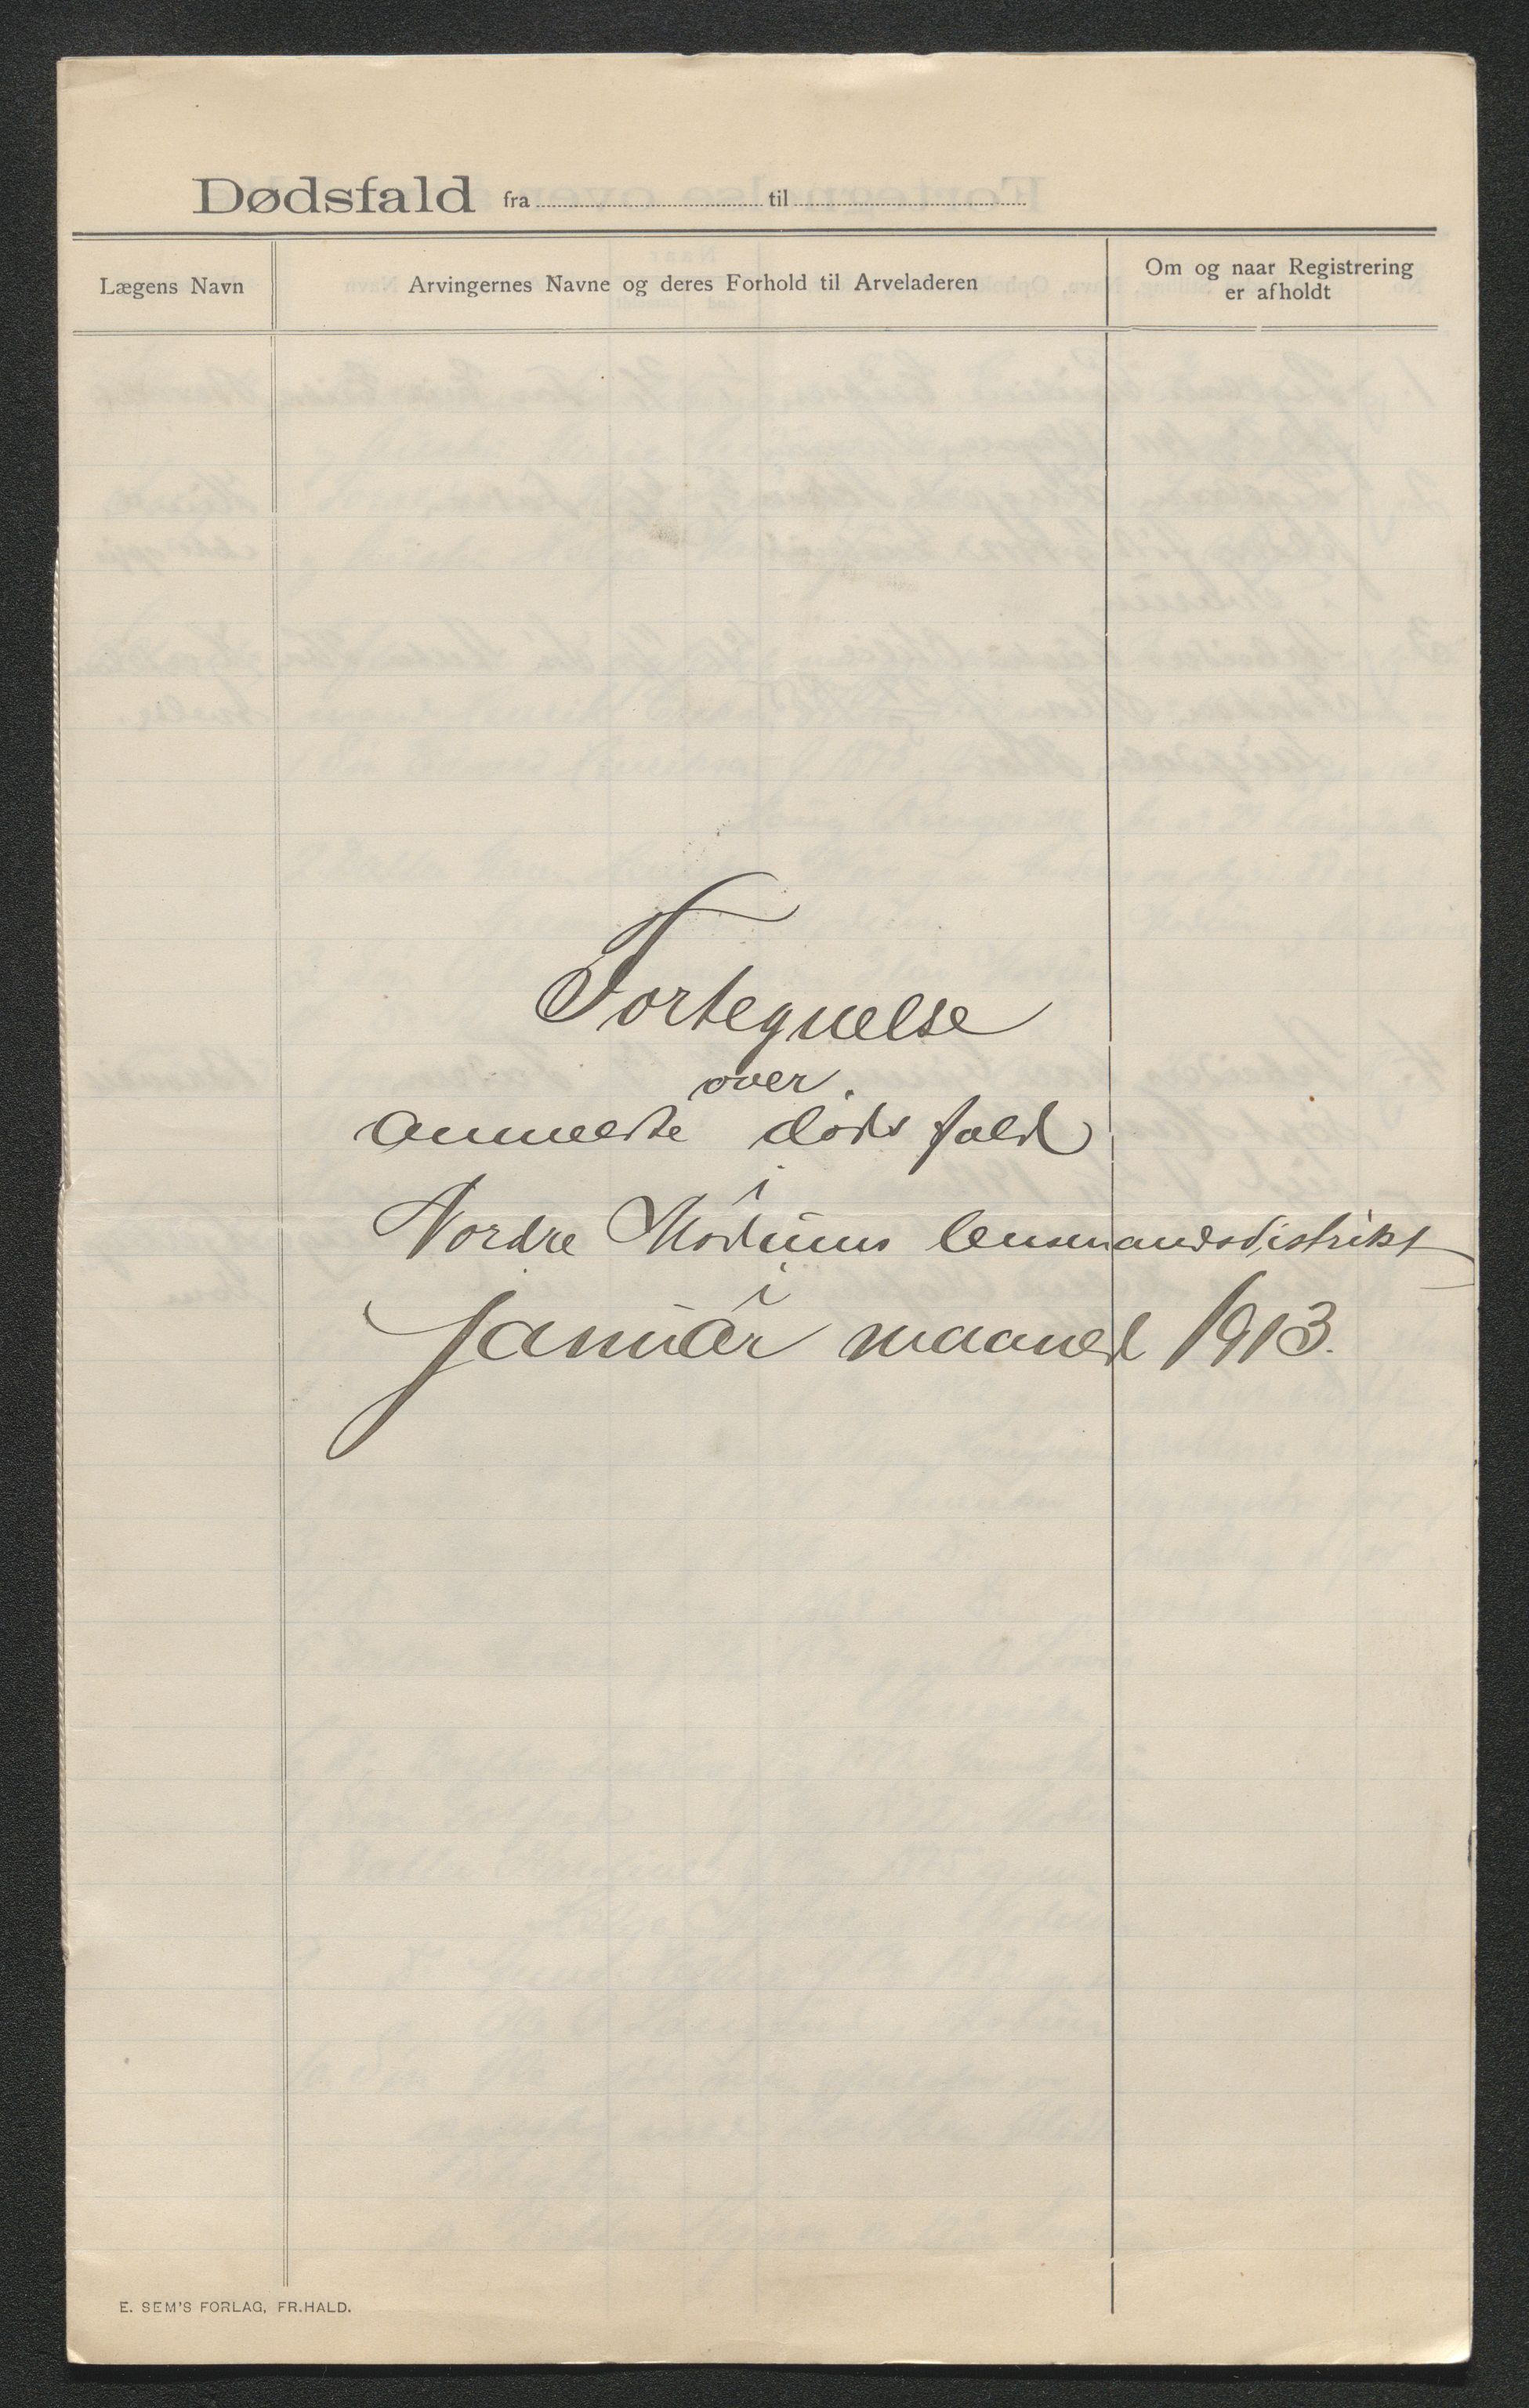 Dødsfald fra ........ til ........
Lægens Navn
Arvingernes Navne og deres Forhold til Arveladeren
Om og naar Registrering
er afholdt
Fortegnelse
over
anmeldte dødsfald
i
Nordre Modums lensmandsdistrikt
i
Januar maaned 1913.
E. SEM'S FORLAG, FR.HALD.